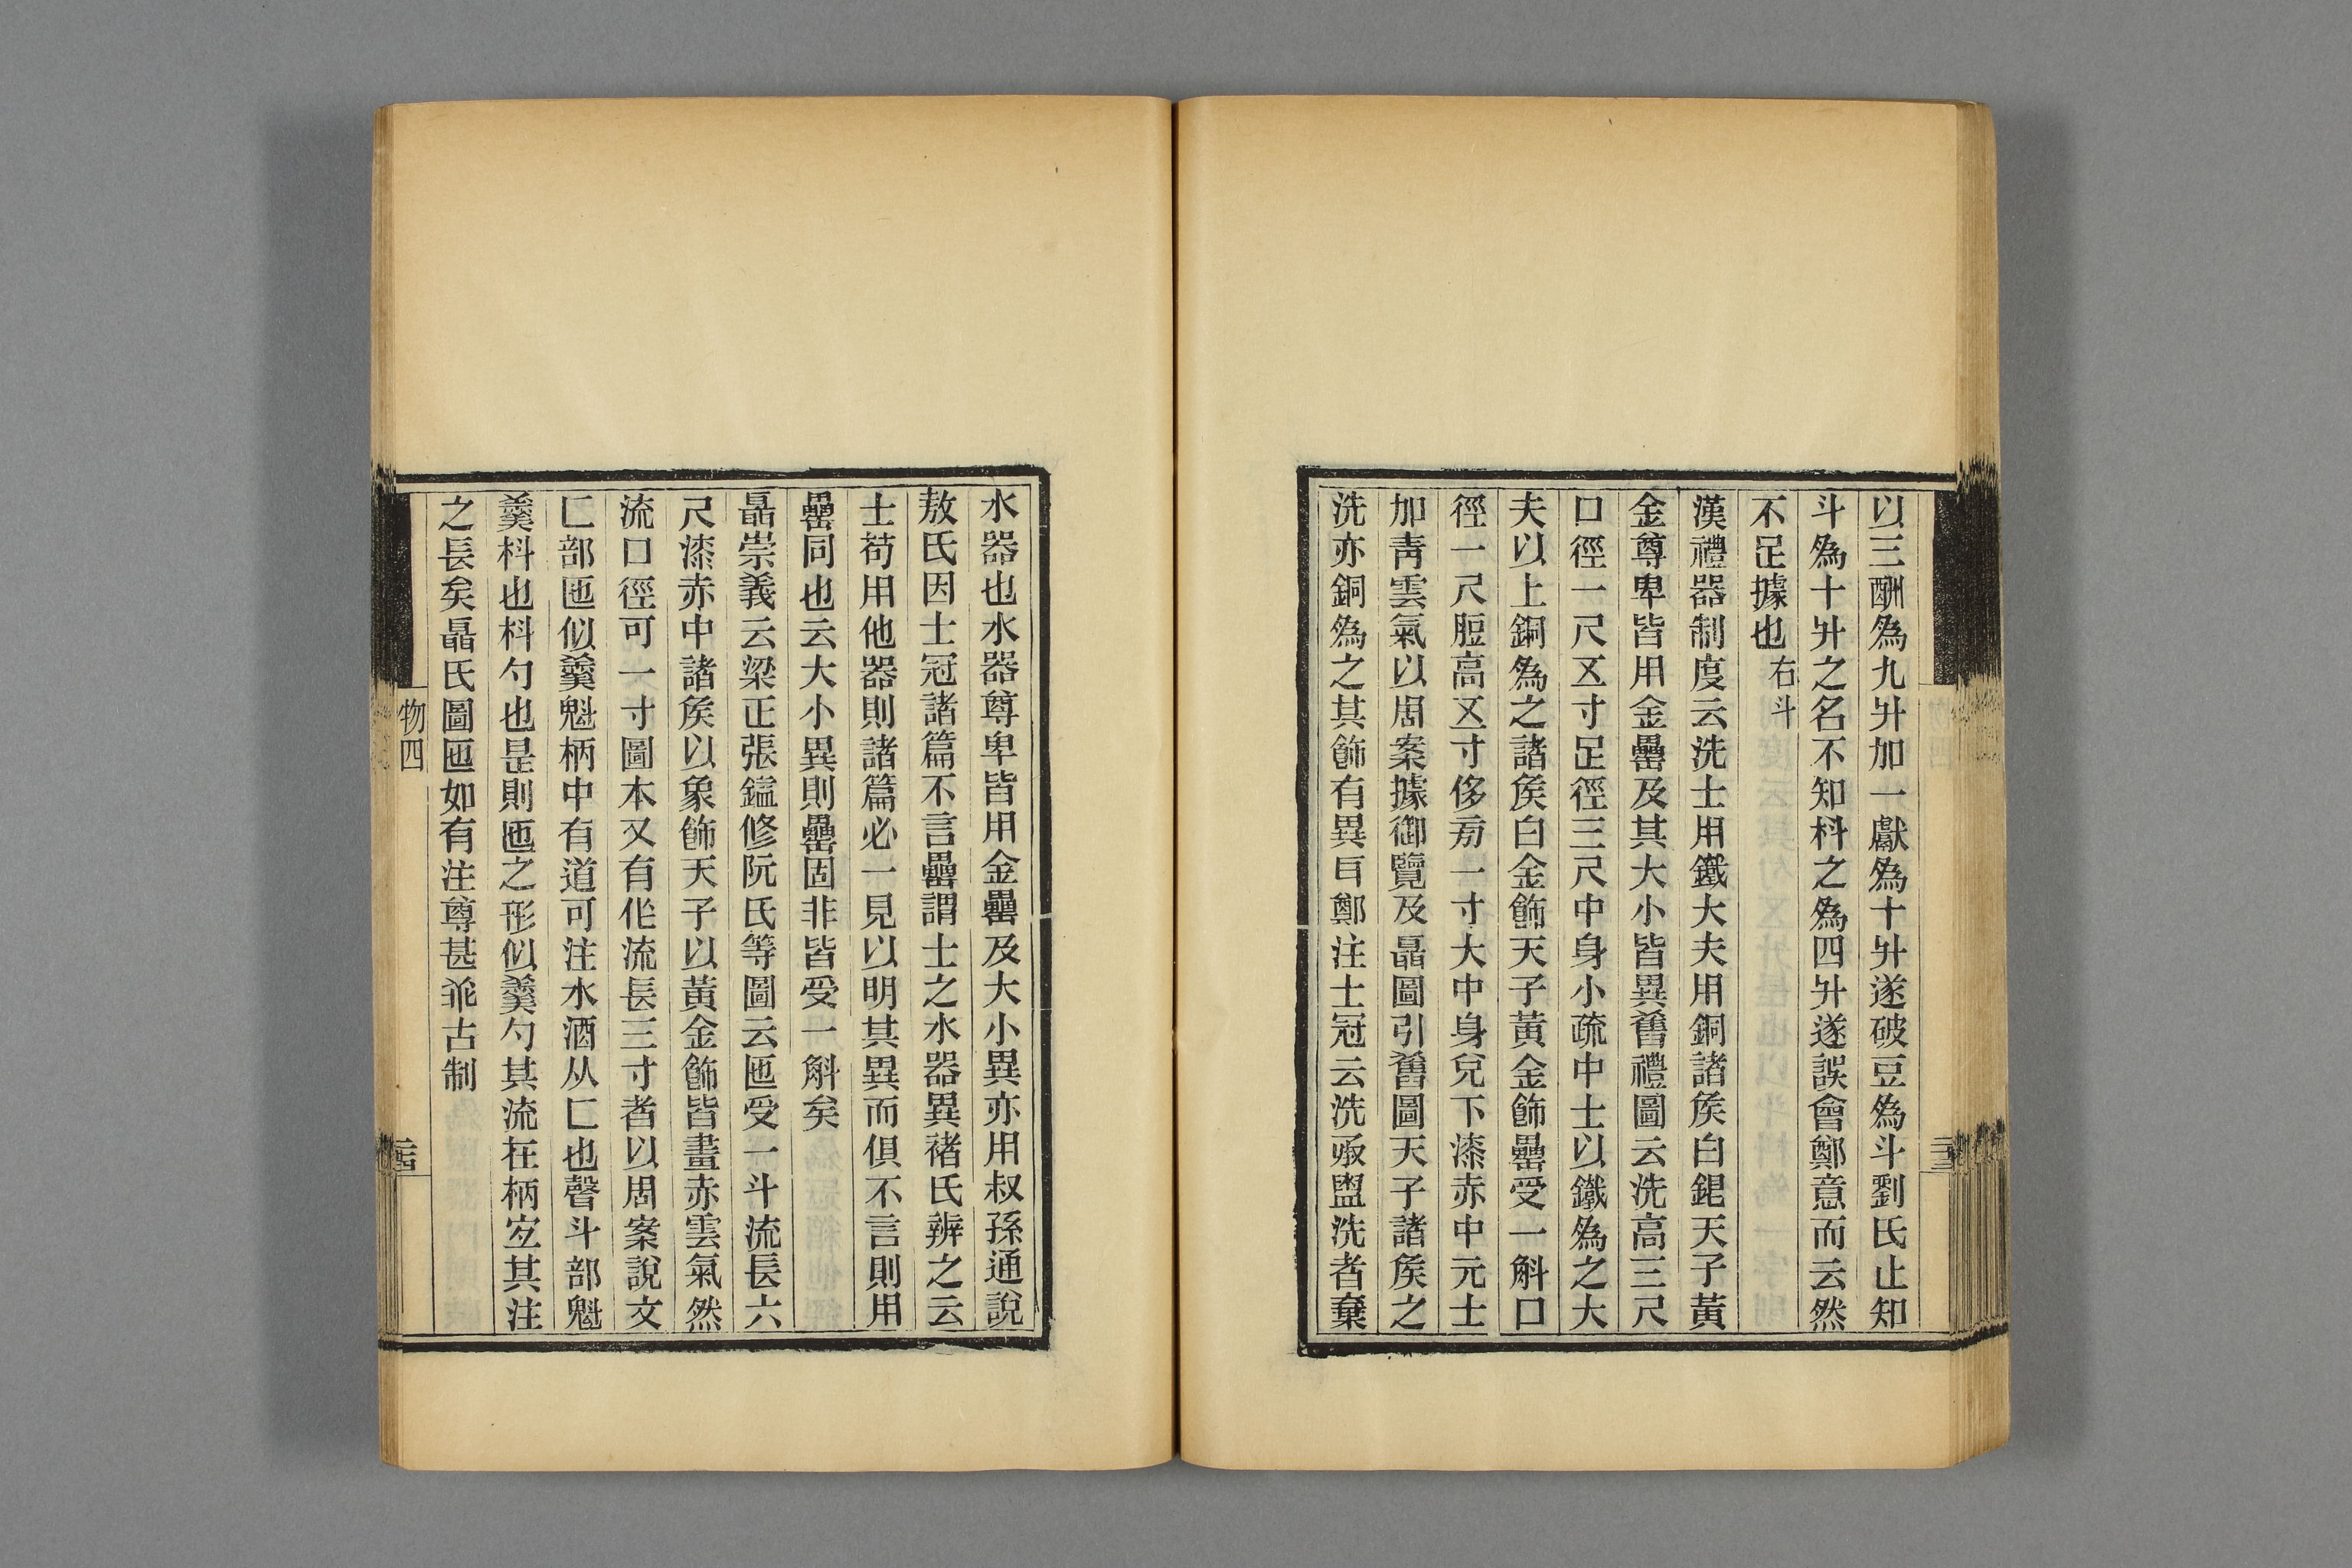 以三酬爲九升加一獻爲十升遂破豆爲斗劉氏止知
斗爲十升之名不知枓之爲四升遂誤會鄭意而云然
不足據也右斗
漢禮器制度云洗士用鐵大夫用銅諸矦白錕天子黃
金尊卑皆用金罍及其大小皆異舊禮圖云洗高三尺
口徑一尺五寸足徑三尺中身小疏中士以鐵爲之大
夫以上銅爲之諸矦白金飾天子黃金飾罍受一斛口
徑一尺脰高五寸侈旁一寸大中身兌下漆赤中元士
加青雲氣以周案據御覽及聶圖引舊圖天子諸矦之
洗亦銅爲之其飾有異耳鄭注士冠云洗承盥洗者棄
水器也水器尊卑皆用金罍及大小異亦用叔孫通說
敖氏因士冠諸篇不言罍謂士之水器異褚氏辨之云
士苟用他器則諸篇必一見以明其異而俱不言則用
罍同也云大小異則罍固非皆受一斛矣
聶崇義云梁正張鎰修阮氏等圖云匜受一斗流長六
尺漆赤中諸矦以象飾天子以黃金飾皆畫赤雲氣然
流口徑可一寸圖本又有作流長三寸者以周案說文
匚部匜似羹魁柄中有道可注水酒从匚也聲斗部魁
羹枓也枓勺也是則匜之形似羹勺其流在柄宐其注
之長矣聶氏圖匜如有注尊甚乖古制
物四
二十四